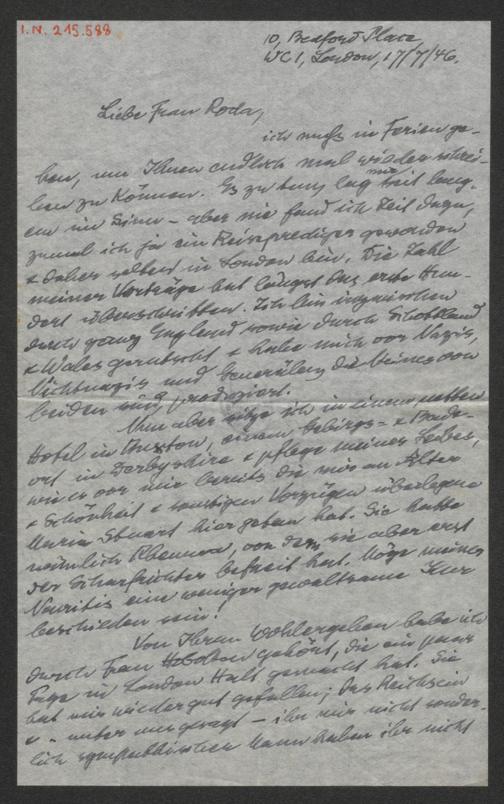 I.N. 215.588
10, Bedford Place,
WC1, London, 17/7/46.
Liebe Frau Roda,
ich muß in Ferien ge-
hen, um Ihnen endlich mal wieder schrei-
ben zu können. Es zu tun, lag mir seit lang-
em im Sinn – aber nie fand ich Zeit dazu,
zumal ich ja ein Reiseprediger geworden
& daher selten in London bin. Die Zahl
meiner Vorträge hat längst das erste Hun-
dert überschritten. Ich bin inzwischen
durch ganz England sowie durch Schottland
& Wales gerutscht & habe mich vor Nazis,
Nichtnazis und Generälen, die keines von
beiden sind, produziert.
Nun aber sitze ich in einem netten
Hotel in Buxton, einem Gebirgs- & Bade-
ort in Derbyshire & pflege meines Leibes,
wie es vor mir bereits die mir an Alter
& Schönheit & sonstigen Vorzügen überlegene
Maria Stuart hier getan hat. Sie hatte
nämlich Rheuma, von dem sie aber erst
der Scharfrichter befreit hat. Möge meiner
Neuritis eine weniger gewaltsame Kur
beschieden sein!
Von Ihrem Wohlergehen habe ich
durch Frau gehört, die ein paar
Tage in London Halt gemacht hat. Sie
hat mir wieder gut gefallen; das
& – unter uns gesagt – ihr mir nicht sonder-
lich sympathischer Mann haben ihr nicht